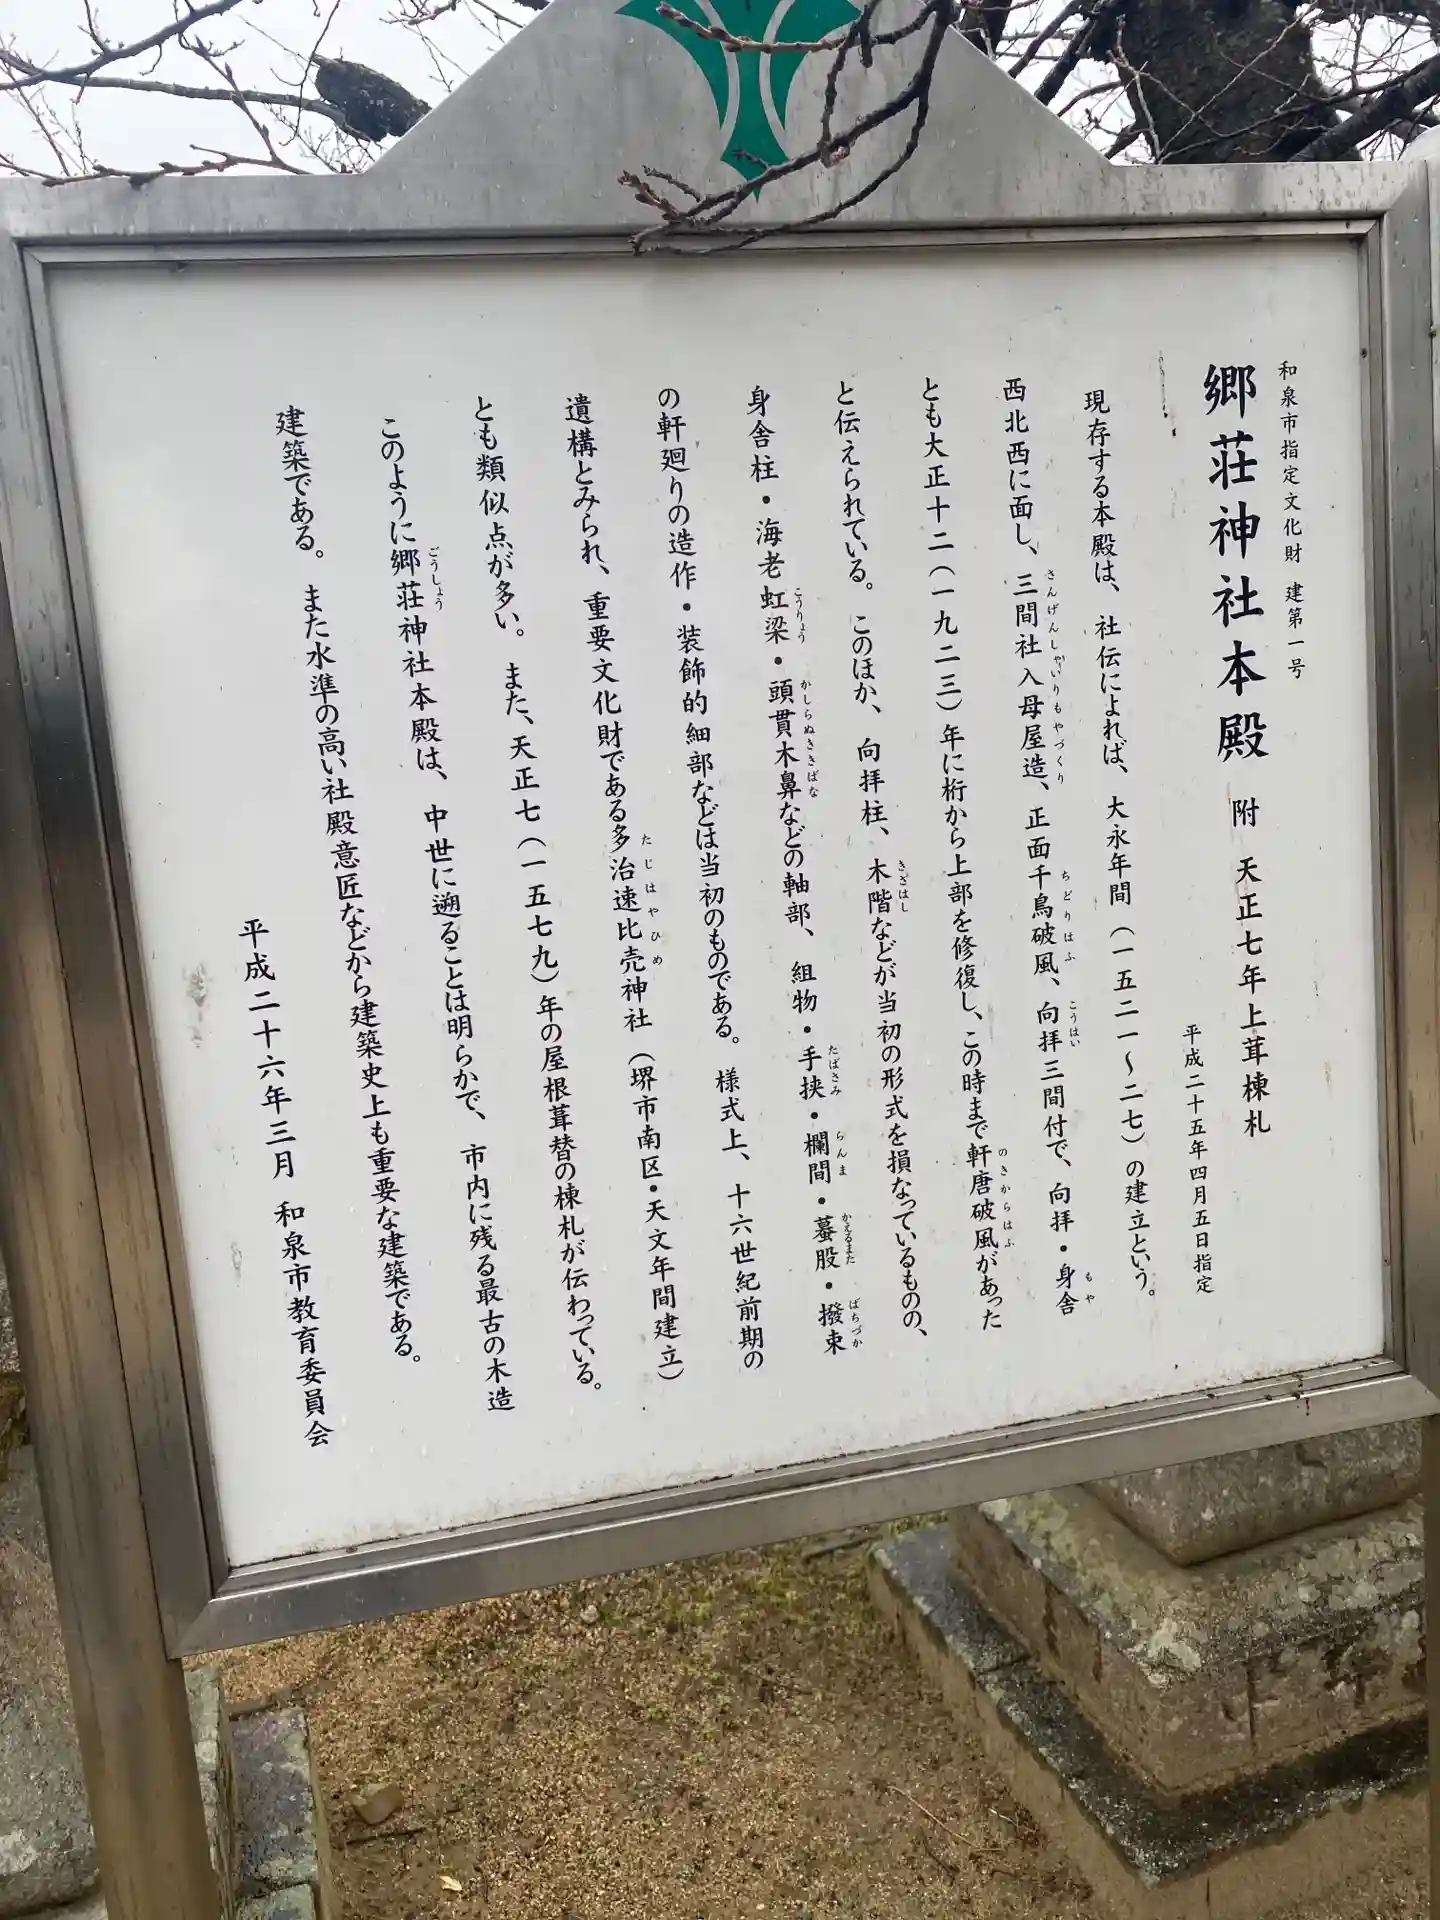 和泉市指定文化財 建第一号
郷荘神社本殿 附 天正七年上葺棟札
平成二十五年四月五日指定
現存する本殿は、社伝によれば、大永年間(一五二一~二七)の建立という。
西北西に面し、三間社入母屋造、正面千鳥破風、向拝三間付で、向拝・身舎
さんげんしゃいりもやづくり ちどりはふ こうはい もや
とも大正十二(一九二三)年に桁から上部を修復し、この時まで軒唐破風があった
のきからはふ
と伝えられている。このほか、向拝柱、木階などが当初の形式を損なっているものの、
きざはし
身舎柱・海老虹梁・頭貫木鼻などの軸部、組物・手挟・欄間・蟇股・撥束
こうりょう かしらぬききばな たばさみ らんま かえるまた ばちづか
の軒廻りの造作・装飾的細部などは当初のものである。様式上、十六世紀前期の
遺構とみられ、重要文化財である多治速比売神社(堺市南区・天文年間建立)
たじはやひめ
とも類似点が多い。また、天正七(一五七九)年の屋根葺替の棟札が伝わっている。
このように郷荘神社本殿は、中世に遡ることは明らかで、市内に残る最古の木造
ごうしょう
建築である。また水準の高い社殿意匠などから建築史上も重要な建築である。
平成二十六年三月 和泉市教育委員会